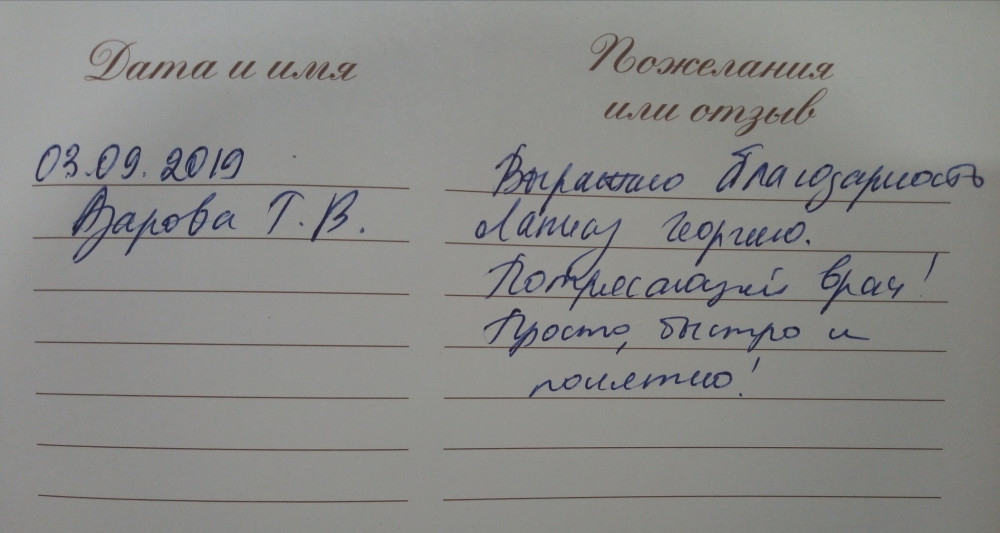 Дата и имя
03.09.2019
Азарова Т. В.
Пожелания
или отзыв
Выражаю благодарность
Георгию.
Потрясающий врач!
Просто, быстро и
понятно!